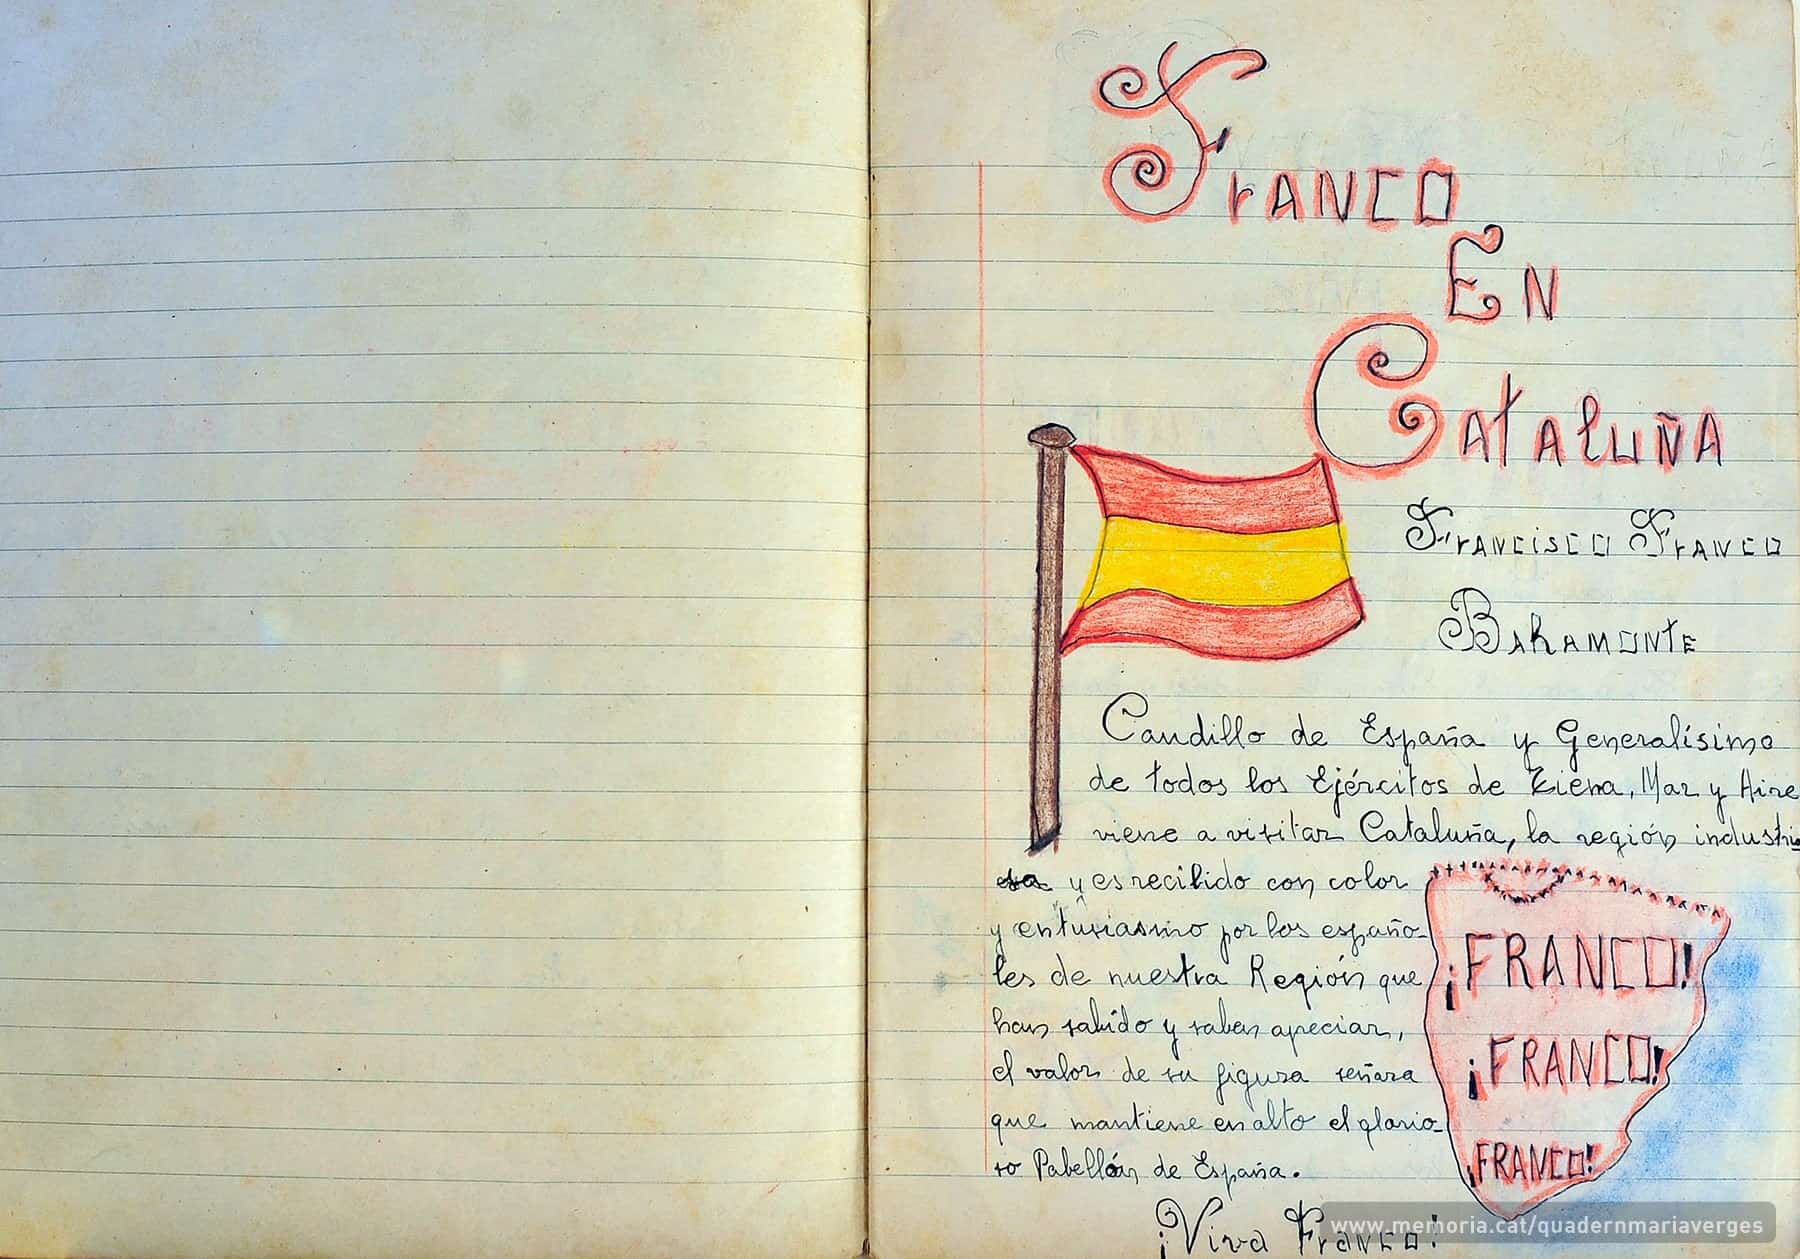 Franco
En
Cataluña
Francisco Franco
Bahamonte
Caudillo de España y Generalísimo
de todos los Ejércitos de Tierra, Mar y Aire
viene a visitar Cataluña, la región industrio
sa y es recibido con color
y entusiasmo por los españo-
les de nuestra Región que
han sabido y saben apreciar,
el valor de su figura señera
que mantiene en alto el glorio-
so Pabellón de España.
¡Viva Franco!
¡FRANCO!
¡FRANCO!
¡FRANCO!
www.memoria.cat/quadernmariaverges